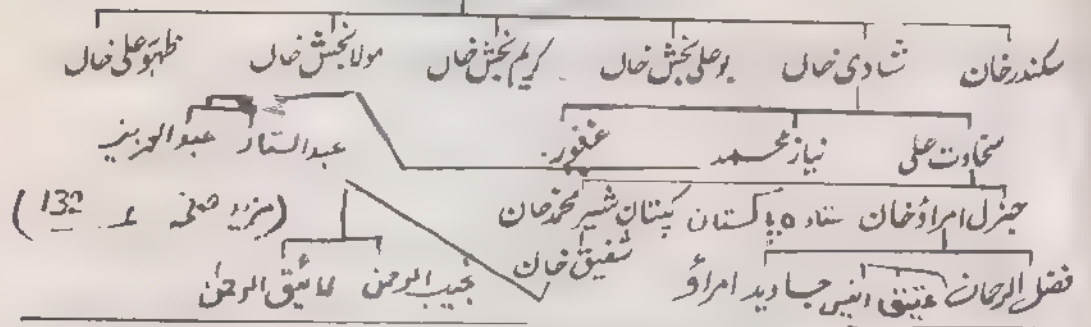 سکندر خان شادی خاں بو علی بخش خاں کریم بخش خاں مولا بخش خاں ظہور علی خاں
سخاوت علی نیاز محمد غفور عبدالستار عبدالعزیز
جنرل امراؤ خان ستارہ پاکستان کیپٹن شیر محمد خان (مزید صفحہ ؏ 132)
فضل الرحمان عتیق انیس جاوید امراؤ شفیق خان نجیب الرحمن لائیق الرحمن